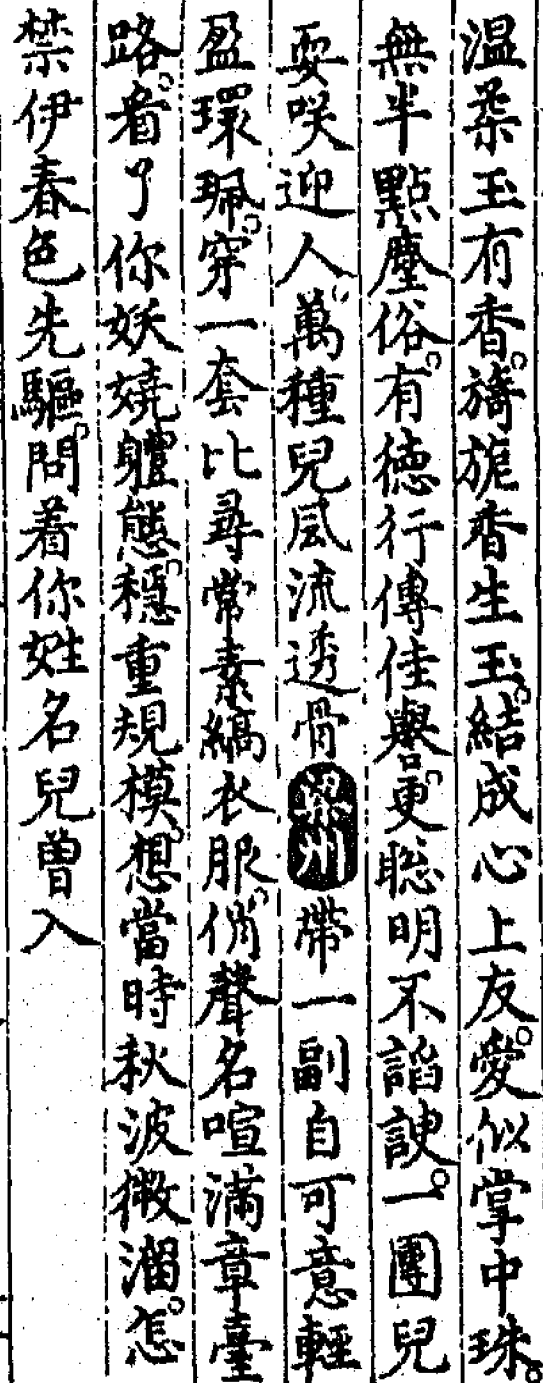 温柔玉有香。旖旎香生玉。結成心上友。愛似掌中珠。
無半點塵俗。有德行傳佳譽。更聡明不謟諛。一團兒
耍咲迎人。萬種兒風流透骨 梁州 帶一副自可意輕
盈環珮。穿一套比尋常素縞衣服。俏聲名喧滿章臺
路。看了你妖嬈軆態。穩重規模。想當時秋波微溜。怎
禁伊春色先驅。問着你姓名兒曾入